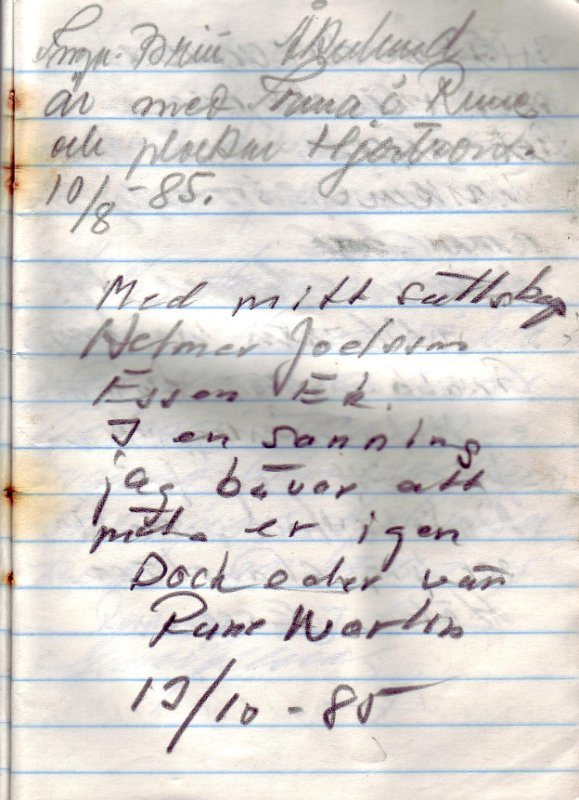 är med Frua o Rune
och plockar Hjortron.
10/8 -85.
Med mitt sällskap
Helmer Joelsson
Essen Ek.
I en sanning
jag bävar att
möta er igen
Dock eder vän
Rune Norlin
13/10 - 85